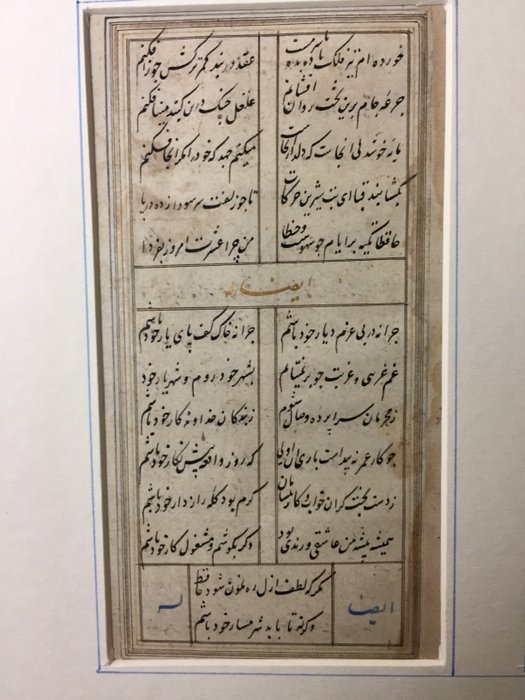 خورده ام تیر فلک باده بده تا سرمست عقده در بند کمر ترکش جوزا فکنم
جرعه جام برین تخت روان افشانم غلغل چنگ درین گنبد مینا فکنم
مایه خوشدلی آنجاست که دلدار آنجاست میکنم جهد که خود را مگر آنجا فکنم
بگشا بند قبا ای بت شیرین حرکات تا چو زلفت سر سودا زده در پا
حافظا تکیه بر ایام چو سهوست و خطا من چرا عشرت امروز بفردا
ایضا وله
چرا نه در پی عزم دیار خود باشم چرا نه خاک کف پای یار خود باشم
غم غریبی و غربت چو بر نمی تابم بشهر خود روم و شهریار خود
ز محرمان سراپرده وصال شوم ز بندگان خداوندگار خود باشم
چو کار عمر نه پیداست باری آن اولی که روز واقعه پیش نگار خود باشم
ز دست بخت گران خواب و کار بی سامان گرم بود گله رازدار خود باشم
همیشه پیشه من عاشقی و رندی بود دگر بکوشم و مشغول کار خود باشم
مگر که لطف ازل رهنمون شود حافظ
وگرنه تا بابد شرمسار خود باشم
ایضا له